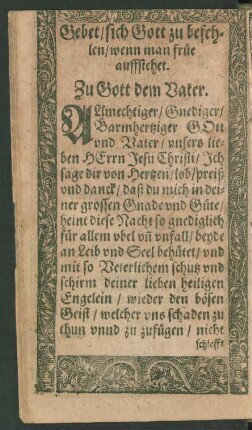 Gebet/sich Gott zu befeh-
len/wenn man früe
auffstehet.
Zu Gott dem Vater.
ALlmechtiger/Gnediger/
Barmhertziger GOtt
vnd Vater/vnsers lie-
ben HErrn Jesu Christi/Ich
sage dir von Hertzen/lob/preiß
vnd danck/daß du mich in dei-
ner grossen Gnade vnd Güte/
heint diese Nacht so gnediglich
für allem vbel vñ vnfall/beyde
an Leib vnd Seel behütet/vnd
mit so Veterlichem schutz vnd
schirm deiner lieben heiligen
Engelein/wieder den bösen
Geist/welcher vns schaden zu
thun vnnd zu zufügen/nicht
schlefft